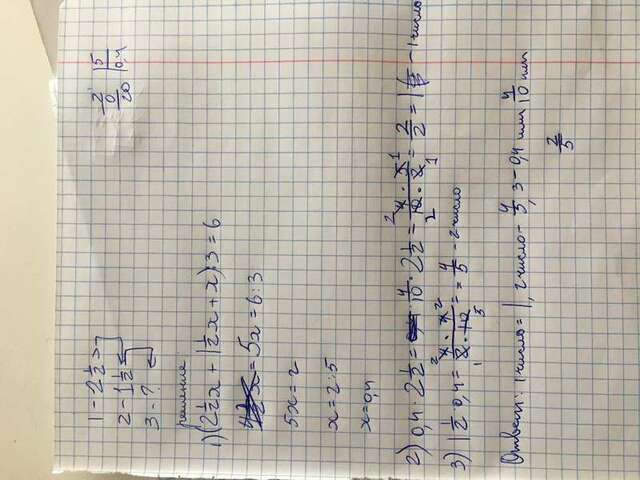 1 - 2 1/2
2 - 1 1/2
3 - ?
2 | 5
0 | 0,4
20
решение:
1) (2 1/2 x + 1 1/2 x + x) · 3 = 6
= 5x = 6 : 3
5x = 2
x = 2 : 5
x = 0,4
2) 0,4 · 2 1/2 = 4/10 · 2 1/2 = 4 · 5 / 10 · 2 = 2/2 = 1 - 1 число
3) 1 1/2 · 0,4 = = 4/5 - 2 число
Ответ: 1 число = 1, 2 число - 4/5, 3 - 0,4 или 4/10 или
2/5